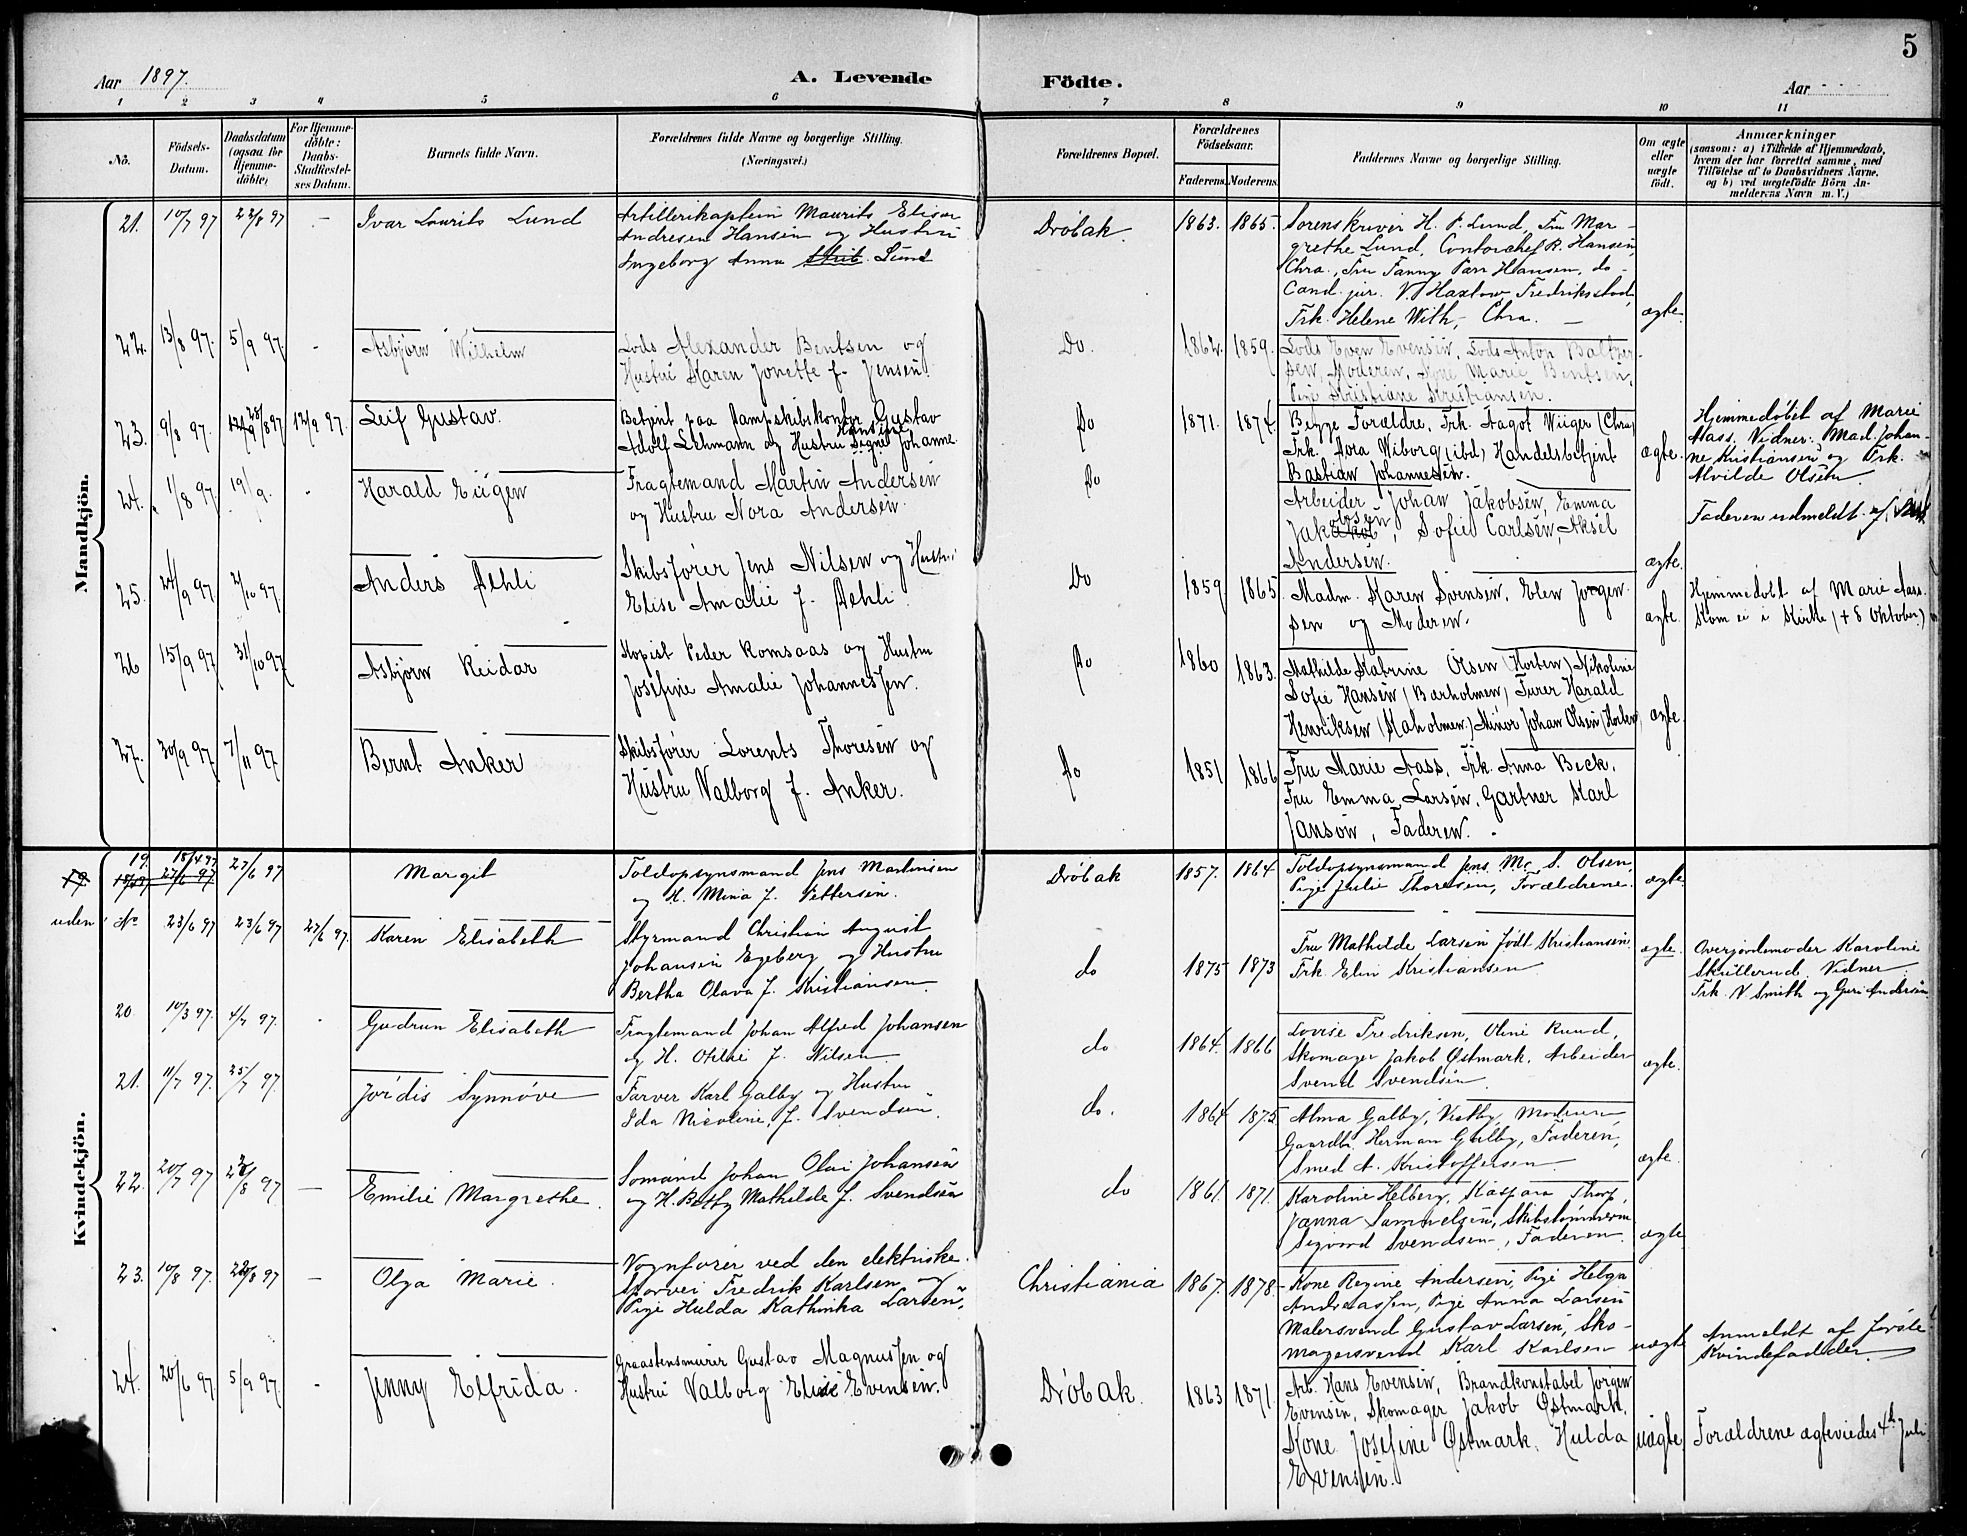 5
Aar 1897.
A. Levende Födte.
Aar
1 2 3 4 5 6 7 8 9 10 11
No.
Födsels-Datum.
Daabsdatum (ogsaa for Hjemme-döbte)
For Hjemme-döbte: Daabs-Stadfæstel-ses Datum.
Barnets fulde Navn.
Forældrenes fulde Navne og borgerlige Stilling.
(Næringsvei.)
Forældrenes Bopæl.
Forældrenes Födselsaar.
Faderens. Moderens.
Faddernes Navne og borgerlige Stilling.
Om ægte eller uægte födt.
Anmærkninger
(saasom: a) i Tilfælde af Hjemmedaab,
hvem der har forrettet samme, med
Tilföielse af to Daabsvidners Navne,
og b) ved uægtefödte Börn An-
melderens Navn m. V.)
Mandkjön.
21. 10/7 97 22/8 97 - Ivar Laurits Lund
Artillerikaptein Maurits
Andresen Hansen og Hustru
Ingeborg Anna Lund
Dröbak. 1863. 1865.
Sorenskriver H. P. Lund, Fru Mar-
grethe Lund, Contorchef R. Hansen,
Chra., Fru Fanny Hansen, do -
Cand. jur. Fredriksstad,
Frk. Helene With, Chra. -
ægte.
22. 13/8 97. 5/9 97. - Asbjørn Wilhelm
Lods Alexander Bentsen og
Hustru Karen Jonette f. Jensen.
Do. 1862. 1859.
Lods Even Evensen, Lods Anton Baltzer-
sen, Moderen, Kone Marie Bentsen,
Pige Kristiane Kristiansen.
23. 9/8 97. 28/8 97 12/9 97. Leif Gustav.
Betjent paa Dampskibskontor Gustav
Adolf Lehmann og Hustru Signe Hansine Johanne
Do 1871. 1874.
Begge Forældre, Frk. Aagot Wiiger (Chra)
Frk. Dora Wiborg (ibd) Handelsbetjent
Bastian Johannesen.
ægte.
Hjemmedöbt af Marie
Aass. Vidner: Mad. Johan-
ne Kristiansen og Frk.
Alvilde Olsen.
24. 1/8 97 19/9. - Harald Eugen
Fragtemand Martin Andersen
og Hustru Nora Andersen.
Do
Arbeider Johan Jakobsen, Emma
Jakobsen, Sofie Carlsen, Aksel
Andersen.
ægte.
Faderen udmeldt af
25. 24/9 97 2/10 97 Anders Aehli
Skibsfører Jens Nilsen og Hustru
Elise Amalie f. Aehli.
Do 1859 1865
Madm. Karen Svensen, Elen Jorgen-
sen og Moderen.
ægte.
Hjemmedöbt af Marie Aass.
Kom ei i Kirke (+ 8 Oktober.)
26 15/9 97 31/10 97 Asbjørn Reidar
Kopist Peder Romsaas og Hustru
Josefine Amalie Johannessen.
Do 1860 1863.
Mathilde Katrine Olsen (Horten) Nikoline
Sofie Hansen, Furer Harald
Henriksen (Kaholmen.) Minör Johan Olsen (Horten)
ægte.
27. 30/9 97 7/11 97 Bernt Anker
Skibsfører Lorents Thoresen og
Hustru Valborg f. Anker.
Do 1851 1866
Fru Marie Aass. Frk. Anna Beck.
Fru Emma Larsen, Gartner Karl
Janson, Faderen.
Kvindekjön.
19. 18/4 97 27/6 97 Margit
Toldopsynsmand Jens Martinsen
og H. Mina f. Pettersen.
Dröbak 1857. 1864
Toldopsynsmand Jens Mc. S. Olsen,
Pige Julie Thoresen, Forældrene.
ægte.
uden No 23/6 97 23/6 97 27/6 97. Karen Elisabeth
Styrmand Christian August
Johansen Egeberg og Hustru
Bertha Olava f. Kristiansen.
do 1875 1873
Fru Mathilde Larsen født Kristiansen,
Frk. Elin Kristiansen
ægte.
Overjordemoder Karoline
Skullerud. Vidner
Frk. N Smith og Guri Andersen
20 10/3 97. 4/7 97. - Gudrun Elisabeth
Fragtemand Johan Alfred Johansen
og H. f. Nilsen.
do 1864. 1866
Lovise Fredriksen, Oline Ruud,
Skomager Jakob Østmark, Arbeider
Svend Svendsen
ægte.
21. 11/7 97. 25/7 97. Jørdis Synnøve
Farver Karl Galby og Hustru
Ida Nicoline, f. Svendsen.
do. 1864 1875
Alma Galby, Vestby, Moderen
Gaardbr. Herman Galby, Faderen,
Smed A. Kristoffersen.
ægte.
22. 20/7 97 /8 97 - Emilie Margrethe.
Sømand Johan Olai Johansen
og H. Betty Mathilde f. Svendsen
do 1861. 1871.
Karoline Helberg, Kaspara Thorp,
Janna Samuelsen, Skibstømmerm.
Sigvard Svendsen, Faderen.
ægte
23. 10/8 97. 22/8 97 - Olga Marie.
Vognfører ved den elektriske
Sporvei Fredrik Karlsen og
Pige Hulda Kathinka Larsen.
Christiania 1867. 1878.
Kone Regine Andersen, Pige Helga
Andreassen, Pige Anna Larsen
Malersvend Gustav Larsen, Sko-
magersvend Karl Karlsen
uægte
Anmeldt af første
Kvindefadder.
24. 20/6 97 5/9 97. - Jenny Elfrida.
Graastensmurer Gustav Magnussen og
Hustru Valborg Elise Evensen.
Dröbak. 1863 1871.
Arb. Hans Evensen, Brandkonstabel Jörgen
Evensen, Skomager Jakob Østmark,
Kone Josefine Østmark, Hulda
Evensen.
uægte
Forældrene ægteviedes 4de Juli